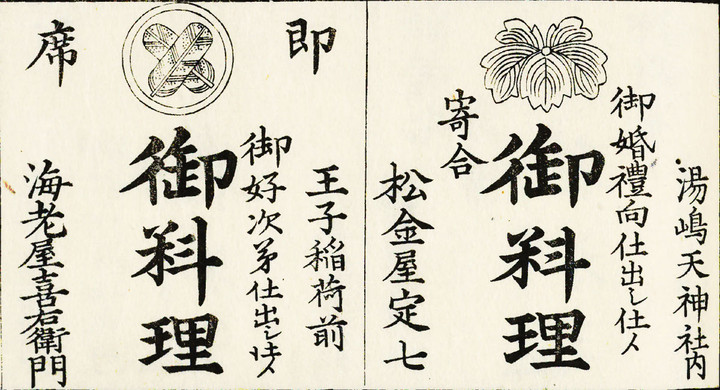 湯嶋天神社内
御婚禮向仕出し仕候
御料理
寄合
松金屋定七
即席
王子稲荷前
御好次第仕出し仕候
御料理
海老屋喜右衛門